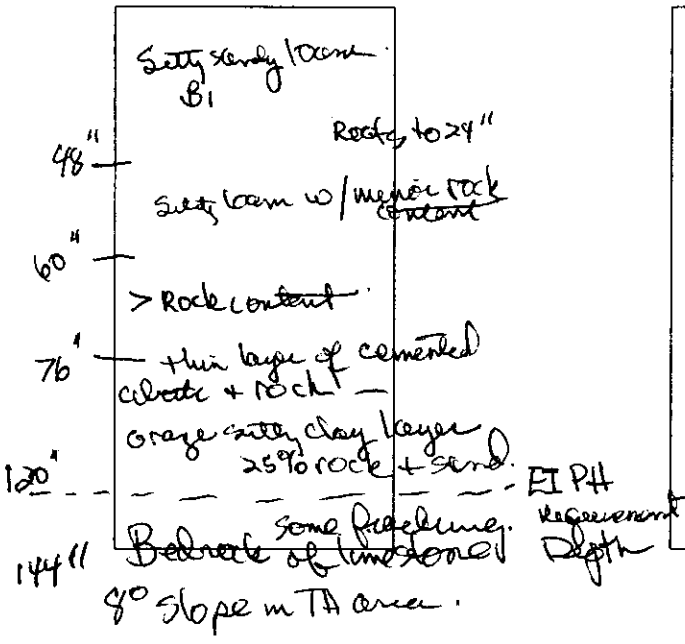 Silty sandy loam
B1
Roots to 24"
48"
Silty loam w/ minor rock
content
60"
> Rock content
76"
thin layer of cemented
+ rock
orange silty clay layer
25% rock + sand.
120"
EIPH
Requirement
Depth
some fracturing.
144" Bedrock of limestone
8° slope in TA area.